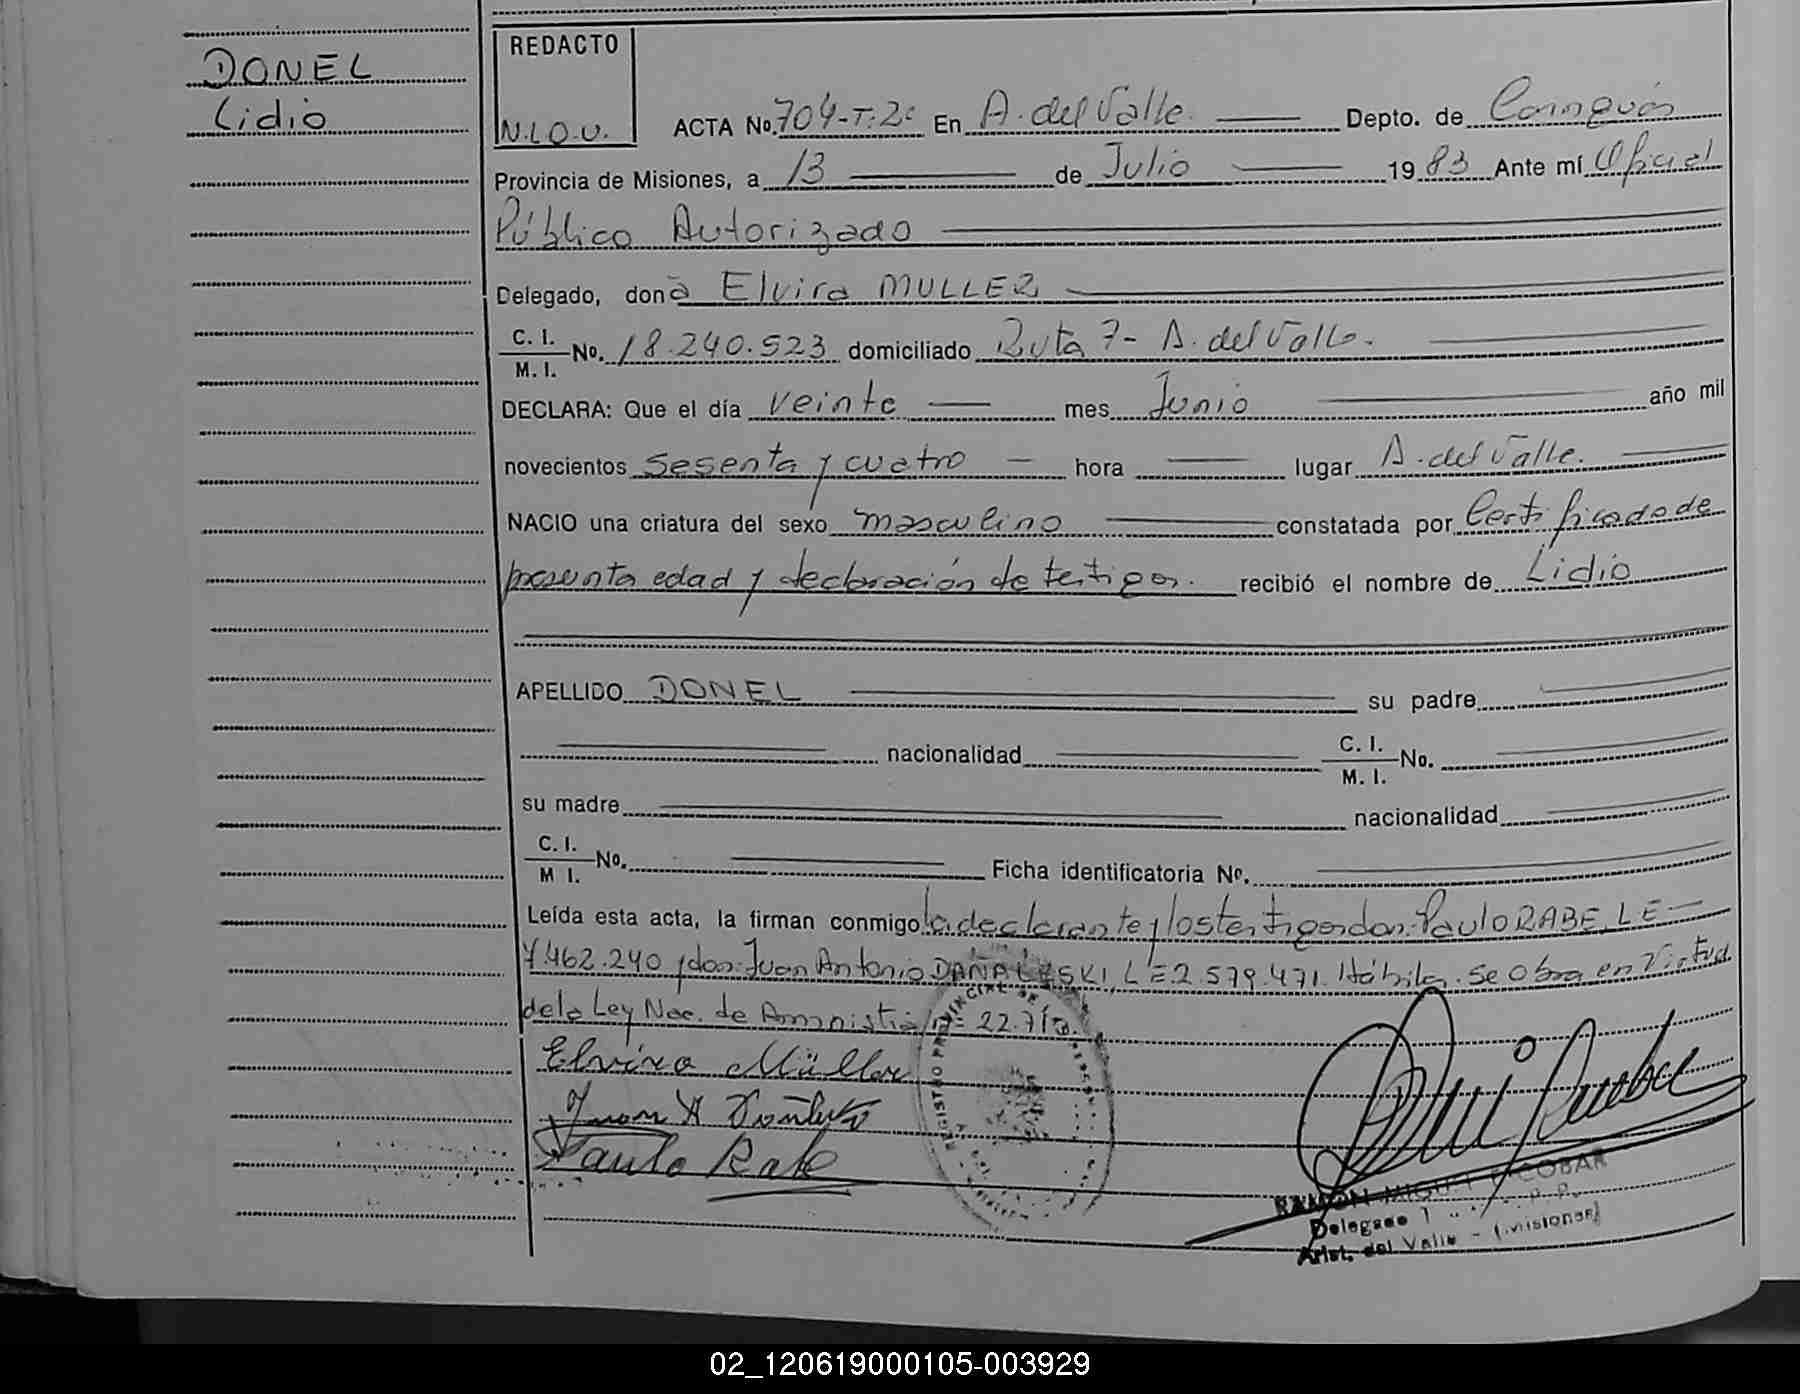 DONEL
Lidio
REDACTO
N.L.O.U.
ACTA No. 704-T:2º En A. del Valle. Depto. de Cainguás
Provincia de Misiones, a 13 de Julio 1983 Ante mí Oficial
Público Autorizado
Delegado, doña Elvira MULLER
C. I.
M. I. No. 18.240.523 domiciliado Ruta 7- A. del Valle.
DECLARA: Que el día veinte mes Junio año mil
novecientos sesenta y cuatro hora lugar A. del Valle.
NACIO una criatura del sexo masculino constatada por Certificado de
presunta edad y declaración de testigos. recibió el nombre de Lidio
APELLIDO DONEL su padre
nacionalidad C. I.
M. I. No.
su madre nacionalidad
C. I.
M I. No. Ficha identificatoria No.
Leída esta acta, la firman conmigo la declarante y los testigos don: Paulo RABE, LE
7.462.240 y don: Juan Antonio LE=2.579.471. Hábiles. Se Obra en Virtud
de la Ley Nac. de Amnistia nº= 22.
Elvira Müller
Juan A
Paulo Rabe
REGISTRO PROVINCIAL DE
RAMON MIGUEL ESCOBAR
Delegado
Arist. del Valle - (Misiones)
02_120619000105-003929